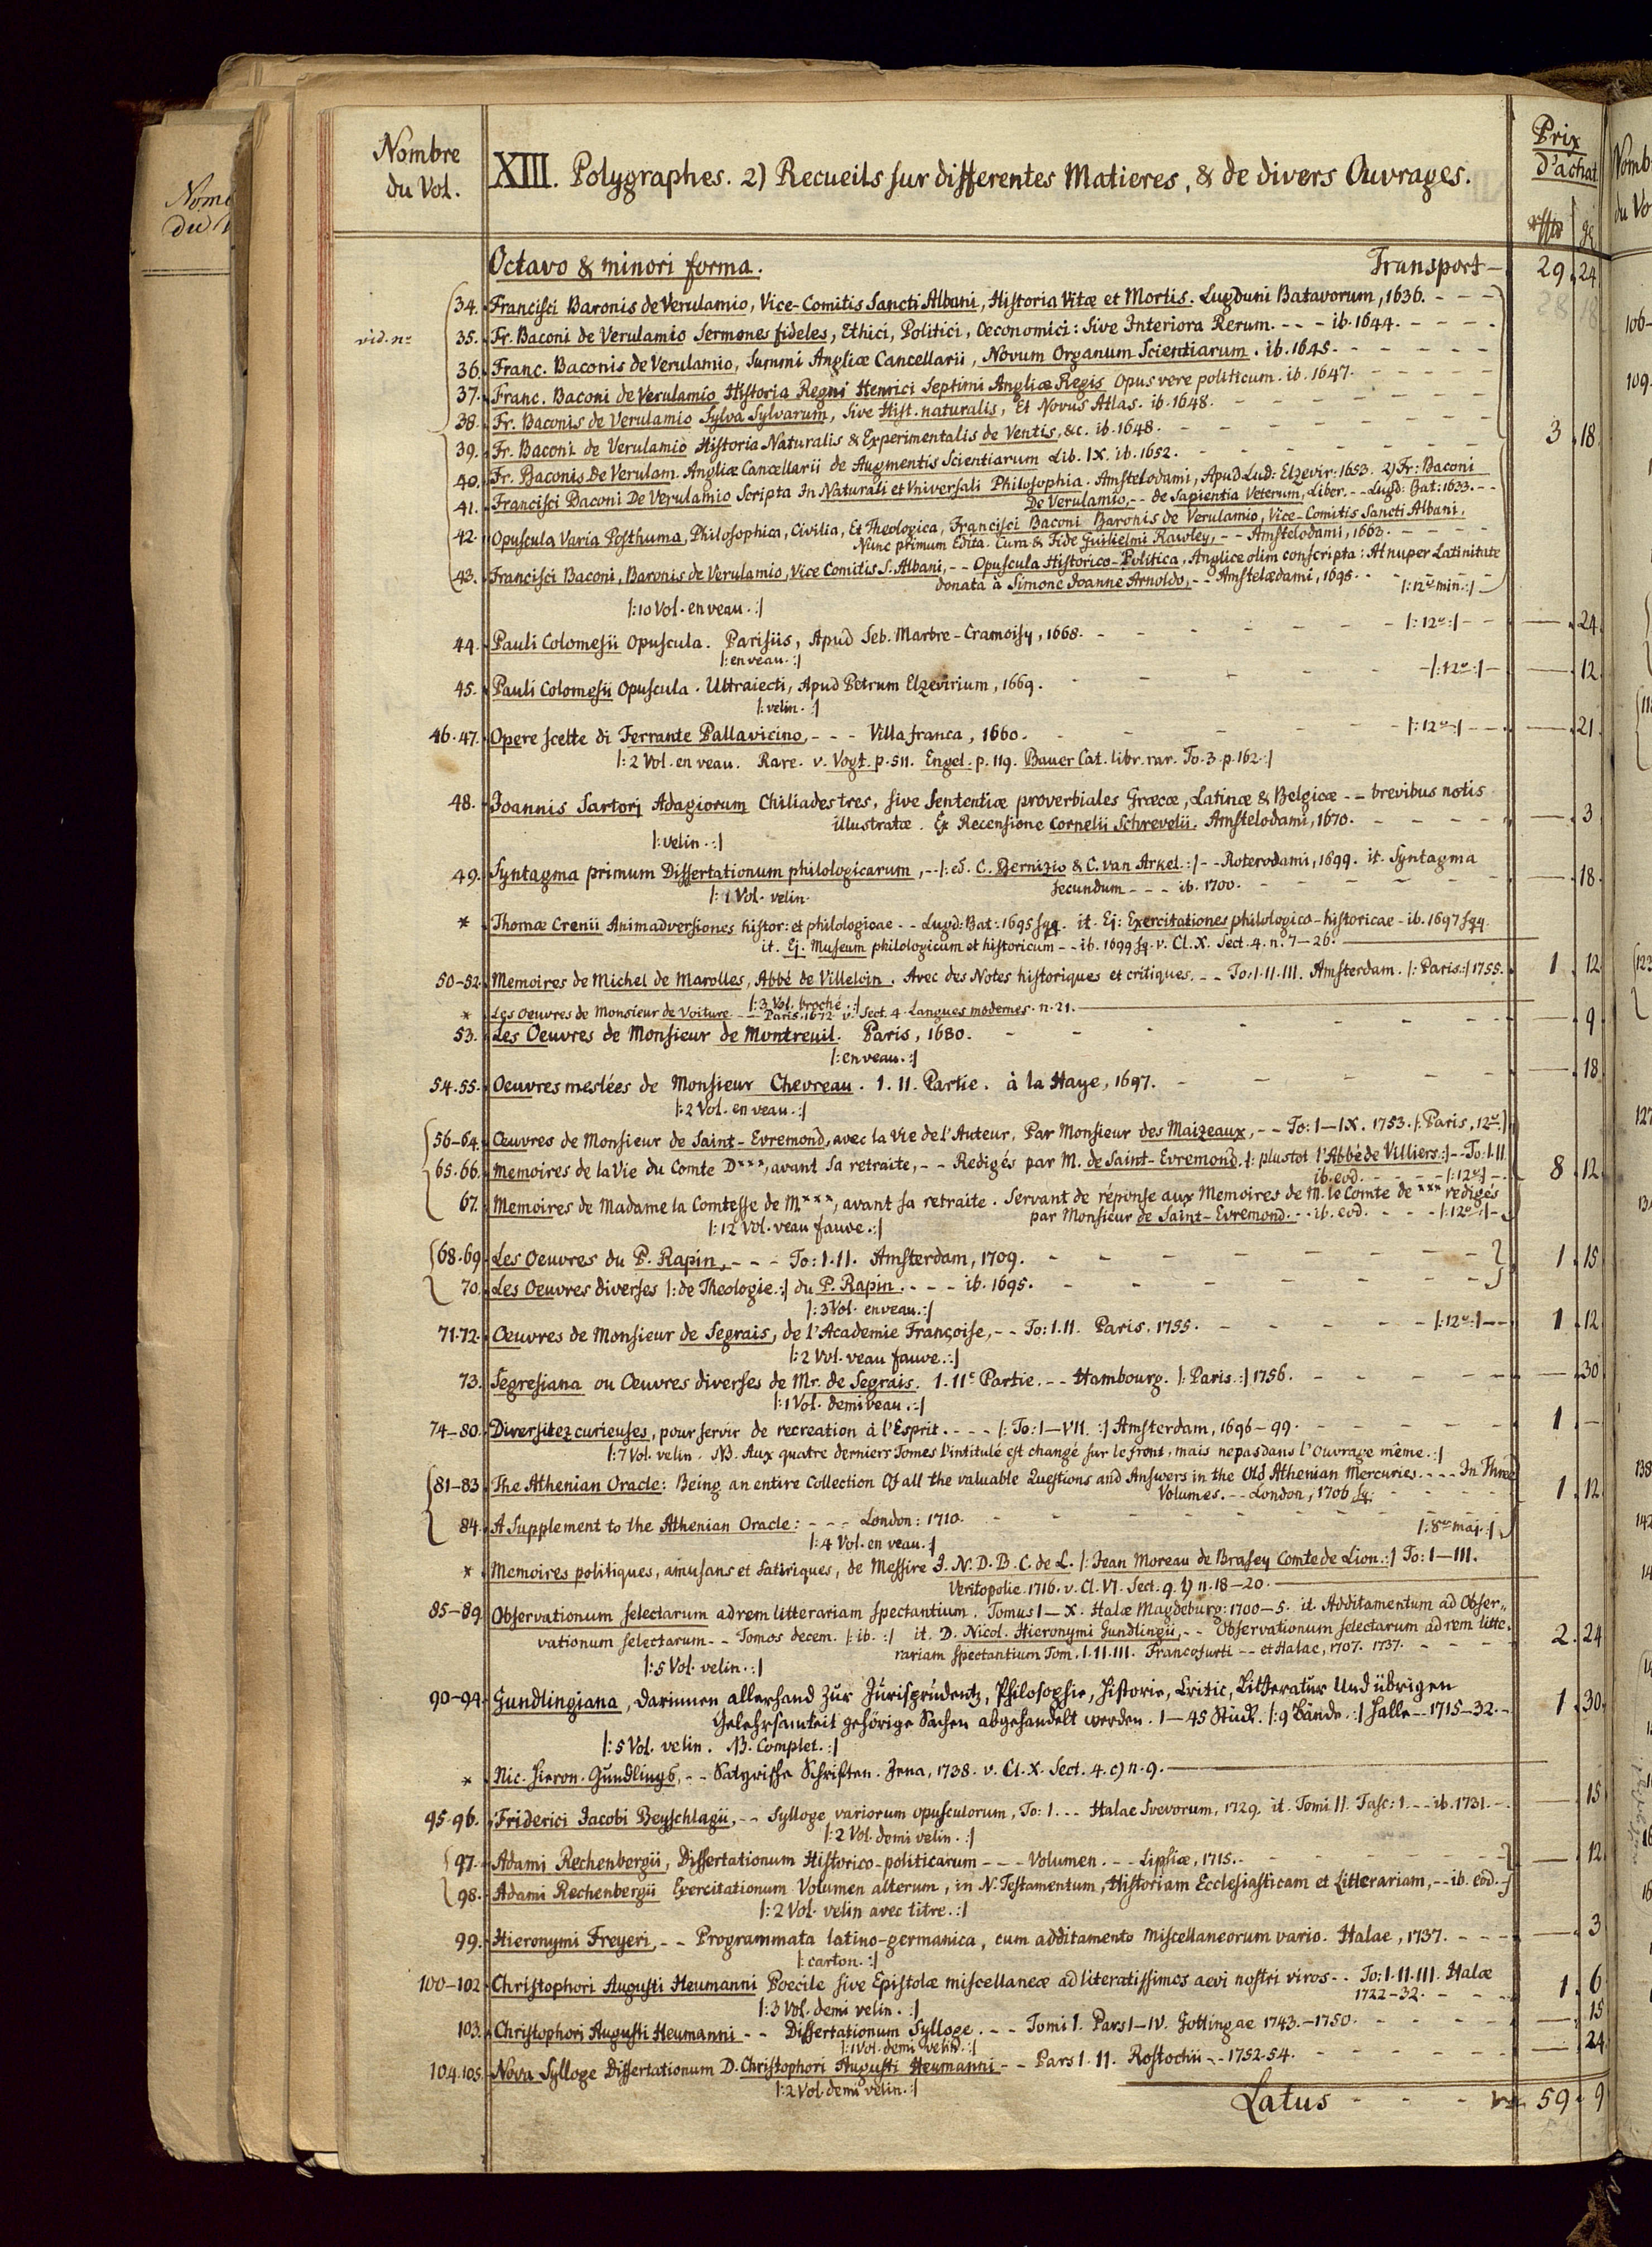 Nombre
du Vol.
XIII. Polygraphes. 2) Recueils sur differentes Matieres, & de divers Ouvrages.
Prix
d'achat
Octavo & minori forma. Transport — 29. 24
34. Francisci Baronis de Verulamio, Vice-Comitis Sancti Albani, Historia Vitæ et Mortis. Lugduni Batavorum, 1636. - - -
vid. nº 35. Fr. Baconi de Verulamio Sermones fideles, Ethici, Politici, Oeconomici: Sive Interiora Rerum. - - - ib. 1644. - - - -
36. Franc. Baconis de Verulamio, Summi Angliæ Cancellarii, Novum Organum Scientiarum. ib. 1645. - - - - -
37. Franc. Baconi de Verulamio Historia Regni Henrici Septimi Angliæ Regis Opus vere politicum. ib. 1647. - - - - -
38. Fr. Baconis de Verulamio Sylva Sylvarum, Sive Hist. naturalis, Et Novus Atlas. ib. 1648. - - - - - -
39. Fr. Baconi de Verulamio Historia Naturalis & Experimentalis de Ventis, &c. ib. 1648. - - - - - - 3. 18.
40. Fr. Baconis de Verulam. Angliæ Cancellarii de Augmentis Scientiarum Lib. IX. ib. 1652. - - - - - -
41. Francisci Baconi De Verulamio Scripta In Naturali et Vniversali Philosophia. Amstelodami, Apud Lud: Elzevir: 1653. 2) Fr: Baconi
De Verulamio, - - de Sapientia Veterum, Liber. - - Lugd: Bat: 1633. - -
42. Opuscula Varia Posthuma, Philosophica, Civilia, Et Theologica, Francisci Baconi Baronis de Verulamio, Vice-Comitis Sancti Albani,
Nunc primum Edita. Cura & Fide Guilielmi Rawley, - - Amstelodami, 1663. - - -
43. Francisci Baconi, Baronis de Verulamio, Vice Comitis S. Albani, - - Opuscula Historico-Politica, Anglice olim conscripta: At nuper Latinitate
donata à Simone Joanne Arnoldo, - - Amstelædami, 1695. - - |: 12º min. :|
|: 10 Vol. en veau. :|
44. Pauli Colomesii Opuscula. Parisiis, Apud Seb. Marbre-Cramoisy, 1668. - - - - - |: 12º :| - - — 24.
|: en veau. :|
45. Pauli Colomesii Opuscula. Ultraiecti, Apud Petrum Elzevirium, 1669. - - - - - |: 12º :| — — 12.
|: velin. :|
46. 47. Opere scelte di Ferrante Pallavicino, - - - Villa franca, 1660. - - - - |: 12º :| - - - — 21.
|: 2 Vol. en veau. Rare. v. Vogt. p. 511. Engel. p. 119. Bauer Cat. libr. rar. To. 3. p. 162. :|
48. Joannis Sartorj Adagiorum Chiliades tres, sive Sententiæ proverbiales Græcæ, Latinæ & Belgicæ - - brevibus notis
illustratæ. Ex Recensione Cornelii Schrevelii. Amstelodami, 1670. - - - - - — 3
|: velin. :|
49. Syntagma primum Dissertationum philologicarum, - - |: ed. C. Bernizio & C. van Arkel. :| - - Roterodami, 1699. it. Syntagma
secundum - - - ib. 1700. - - - - - - — 18.
|: 1 Vol. velin.
* Thomæ Crenii Animadversiones histor: et philologicae - - Lugd: Bat: 1695 sqq. it. Ej: Exercitationes philologico-historicae - ib. 1697 sqq.
it. Ej. Museum philologicum et historicum - - ib. 1699 sq. v. Cl. X. Sect. 4. n. 7—26. —
50—52. Memoires de Michel de Marolles, Abbé de Villeloin. Avec des Notes historiques et critiques. - - To: I. II. III. Amsterdam. |: Paris :| 1755. 1. 12.
|: 3 Vol. broché. :|
* Les Oeuvres de Monsieur de Voiture - - Paris. 1672 v. Sect. 4. Langues modernes. n. 21. —
53. Les Oeuvres de Monsieur de Montreuil. Paris, 1680. - - - - - - - — 9.
|: en veau. :|
54. 55. Oeuvres meslées de Monsieur Chevreau. I. II. Partie. à la Haye, 1697. - - - - - — 18.
|: 2 Vol. en veau. :|
56—64. Œuvres de Monsieur de Saint-Evremond, avec la Vie de l'Auteur, Par Monsieur des Maizeaux, - - To: I—IX. 1753. |: Paris, 12º :|
65. 66. Memoires de la Vie du Comte D***, avant sa retraite, - - Redigés par M. de Saint-Evremond. |: plustot l'Abbé de Villiers :| - - To: I. II
ib. eod. - - - - |: 12º :| - - 8. 12.
67. Memoires de Madame la Comtesse de M***, avant sa retraite. Servant de réponse aux Memoires de M. le Comte de *** redigés
par Monsieur de Saint-Evremond. - - ib. eod. - - - |: 12º :| -
|: 12 Vol. veau fauve. :|
68. 69. Les Oeuvres du P. Rapin, - - - To: I. II. Amsterdam, 1709. - - - - - - - 1. 15.
70. Les Oeuvres diverses |: de Theologie. :| du P. Rapin. - - - - ib. 1695. - - - - - - -
|: 3 Vol. en veau. :|
71. 72. Oeuvres de Monsieur de Segrais, de l'Academie Françoise, - - To: I. II. Paris. 1755. - - - - - |: 12º :| - - 1. 12.
|: 2 Vol. veau fauve. :|
73. Segresiana ou Œuvres diverses de Mr. de Segrais. I. IIe Partie. - - Hambourg. |: Paris. :| 1756. - - - - - — 30
|: 1 Vol. demi veau. :|
74—80. Diversitez curieuses, pour servir de recreation à l'Esprit. - - - - |: To: I—VII. :| Amsterdam, 1696—99. - - - - - 1. —
|: 7 Vol. velin. NB. Aux quatre derniers Tomes l'intitulé est changé sur le front, mais ne pas dans l'Ouvrage même. :|
81—83. The Athenian Oracle: Being an entire Collection Of all the valuable Questions and Answers in the Old Athenian Mercuries. - - - In Three
Volumes. - - London, 1706 sq. - - - - 1. 12.
84. A Supplement to the Athenian Oracle: - - - London: 1710. - - - - - - - |: 8º maj. :|
|: 4 Vol. en veau. :|
* Memoires politiques, amusans et satiriques, de Messire J. N. D. B. C. de L. |: Jean Moreau de Brasey Comte de Lion. :| To: I—III.
Veritopolie. 1716. v. Cl. VI. Sect. 9. 1) n. 18—20. —
85—89. Observationum selectarum ad rem litterariam spectantium. Tomus I—X. Halæ Magdeburg: 1700—5. it. Additamentum ad Obser„
vationum selectarum - - Tomos decem. |: ib. :| it. D. Nicol. Hieronymi Gundlingii, - - Observationum selectarum ad rem litte„
rariam spectantium Tom. I. II. III. Francofurti - - et Halae, 1707. 1737. - - - 2. 24
|: 5 Vol. velin. :|
90—94. Gundlingiana, darinnen allerhand zur Jurisprudentz, Philosophie, Historie, Critic, Litteratur Und übrigen
Gelehrsamkeit gehörige Sachen abgehandelt werden. 1—45 Stück. |: 9 Bände. :| Halle - - 1715—32. - 1. 30.
|: 5 Vol. velin. NB. Complet. :|
* Nic. Hieron. Gundlings, - - Satyrische Schriften. Jena, 1738. v. Cl. X. Sect. 4. c) n. 9. —
95. 96. Friderici Jacobi Beyschlagii, - - Sylloge variorum opusculorum, To: I. - - - Halae Svevorum, 1729. it. Tomi II. Fasc: 1. - - - ib. 1731. - — 15.
|: 2 Vol. demi velin. :|
97. Adami Rechenbergii, Dissertationum Historico-politicarum - - - Volumen. - - - Lipsiæ, 1715. - - - - - - — 12.
98. Adami Rechenbergii Exercitationum Volumen alterum, in N. Testamentum, Historiam Ecclesiasticam et Litterariam, - - ib. eod. -
|: 2 Vol. velin avec titre. :|
99. Hieronymi Freyeri, - - Programmata latino-germanica, cum additamento Miscellaneorum vario. Halae, 1737. - - - — 3
|: carton. :|
100—102. Christophori Augusti Heumanni Poecile sive Epistolæ miscellaneæ ad literatissimos aevi nostri viros - - To: I. II. III. Halæ
1722—32. - - - 1. 6
|: 3 Vol. demi velin. :|
103. Christophori Augusti Heumanni - - Dissertationum Sylloge. - - - Tomi I. Pars I—IV. Gottingae 1743.—1750. - - - - — 15
|: 1 Vol. demi velin. :|
104. 105. Nova Sylloge Dissertationum D. Christophori Augusti Heumanni - - Pars I. II. Rostochii - - 1752-54. - - - - - — 24
|: 2 Vol. demi velin. :|
Latus - - - 59. 9